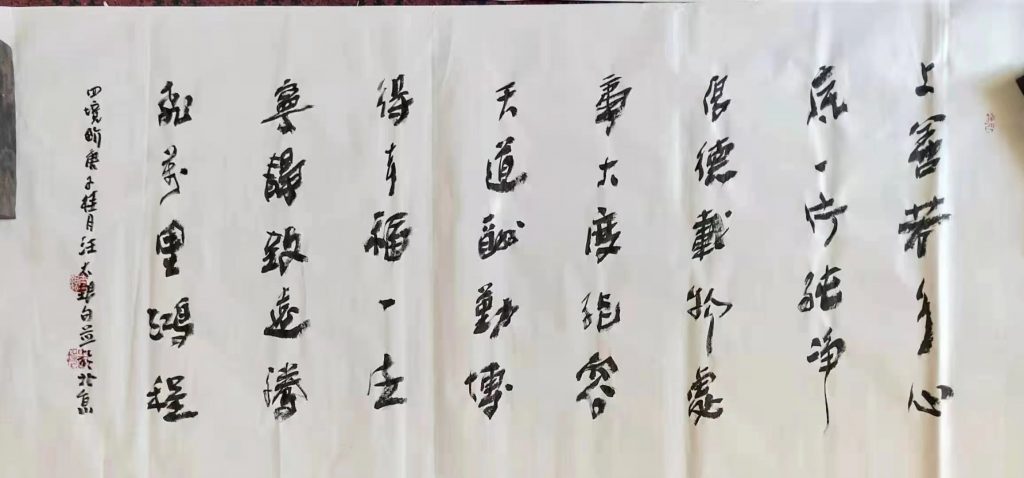 上善若水心
底一片純净
厚德載物處
事大度能容
天道酬勤博
得幸福一生
寧靜致遠騰
飛萬里鴻程
四境 庚子桂月汪 句並於北京